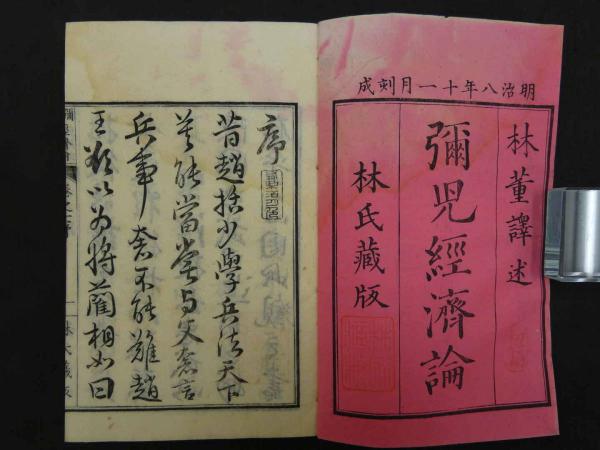 明治八年十一月刻成
林董譯述
彌兒經濟論
林氏藏版
序
昔趙括少學兵法天下
莫能當嘗与父奢言
兵事奢不能難趙
王欲以為将藺相如曰
林氏藏版